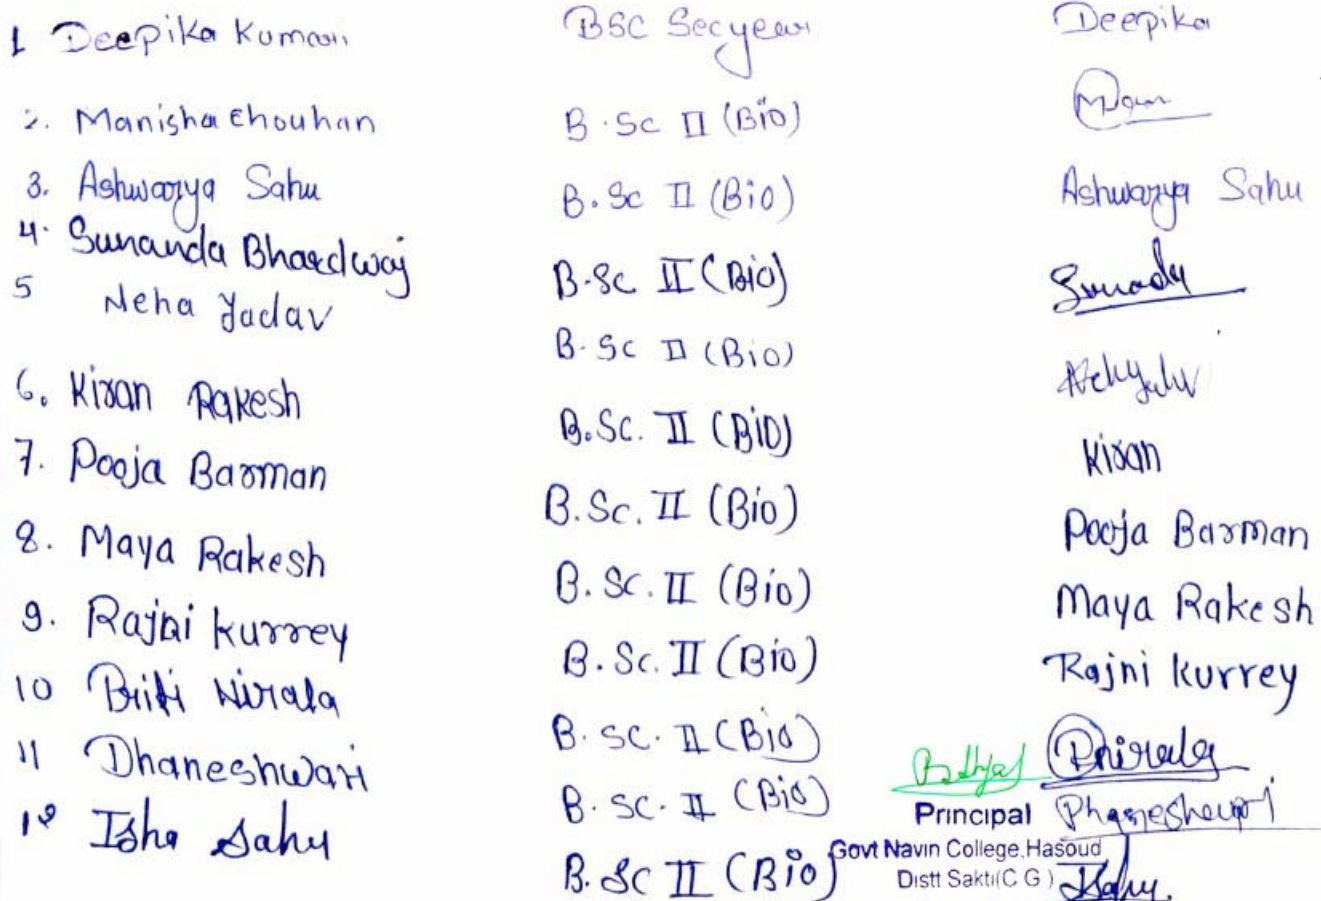 1 Deepika Kumari BSC Sec year Deepika
2. Manisha Chouhan B.Sc II (Bio)
3. Ashwarya Sahu B.Sc II (Bio) Ashwarya Sahu
4. Sunanda Bhardwaj B.Sc II (Bio)
5 Neha Yadav B.Sc II (Bio)
6. Kiran Rakesh B.Sc. II (BiO) Kiran
7. Pooja Barman B.Sc. II (Bio) Pooja Barman
8. Maya Rakesh B.Sc. II (Bio) Maya Rakesh
9. Rajni kurrey B.Sc. II (Bio) Rajni kurrey
10 Priti Nirala B.SC. II (Bio) Pnirala
11 Dhaneshwari B.SC. II (Bio) Dhaneshwari
12 Isha Sahu B.SC II (Bio) Isahu.
Principal
Govt Navin College, Hasoud
Distt Sakti (C G)